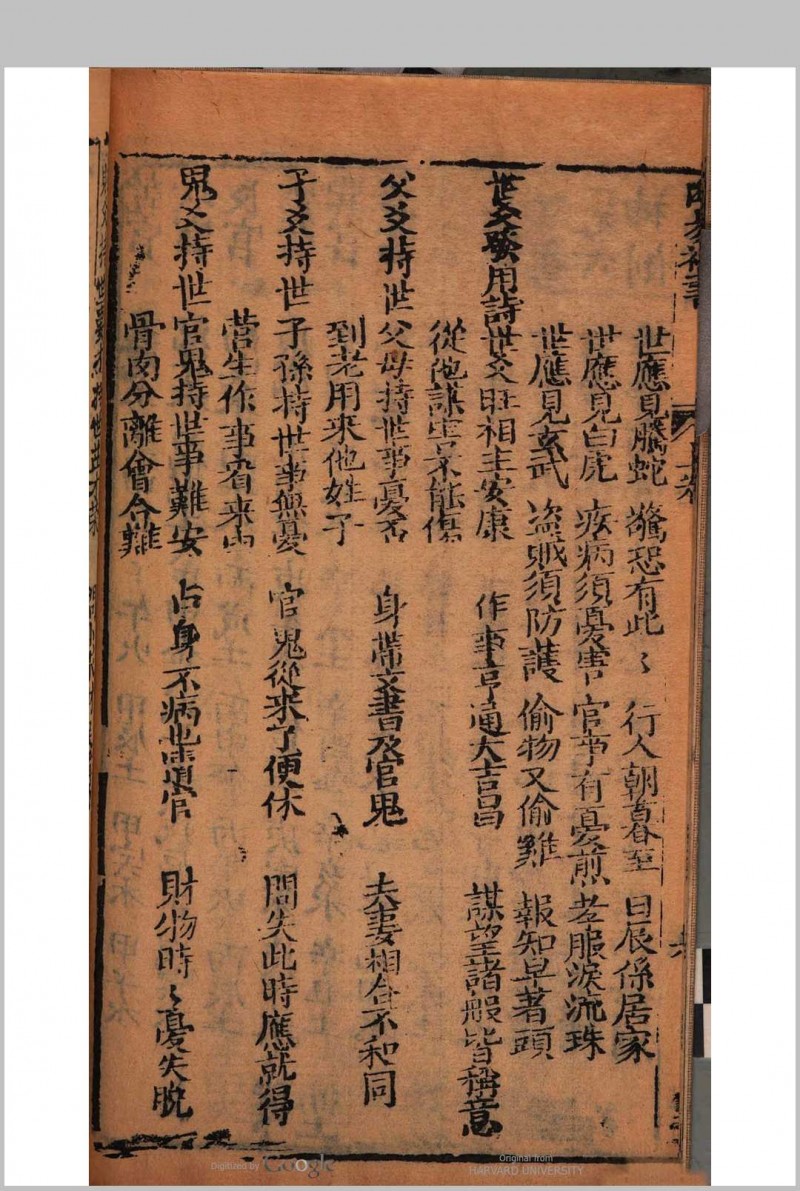 世應見騰蛇　驚恐有此〻　行人朝暮至　日辰係居家
世應見白虎　疾病須憂害　官事有憂煎　孝服淚流珠
世應見玄武　盗賊須防護　偷物又偷雞　報知早著頭
世爻發用詩　世爻旺相主安康　作事亨通大吉昌　謀望諸般皆稱意
從他謀害不能傷
父爻持世　父母持世事憂否　身帶文書及官鬼　夫妻相合不和同
到老用来他姓子
子爻持世　子孫持世事無憂　官鬼從来了便休　問失此時應就得
營生作事看来由
鬼爻持世　官鬼持世事難安　占身不病也遭官　財物時〻憂失脫
骨肉分離會合難
Digitized by Google
Original from
HARVARD UNIVERSITY